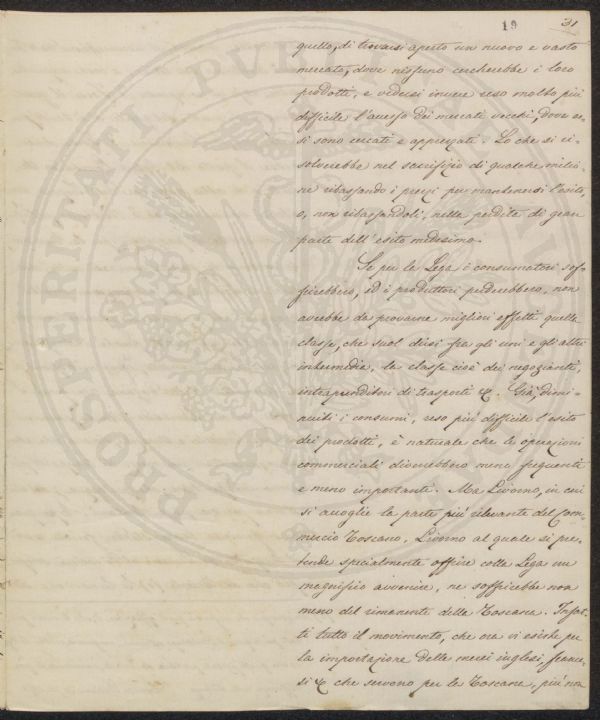 19 31
quello, di trovarsi aperto un nuovo e vasto
mercato, dove nissuno cercherebbe i loro
prodotti, e vedersi invece reso molto più
difficile l'accesso dei mercati vecchi, dove es-
si sono cercati e apprezzati. Lo che si ri-
solverebbe nel sacrifizio di qualche milio-
ne ribassando i prezzi per mantenersi l'esito,
o, non ribassandoli, nella perdita di gran
parte dell'esito medesimo.
Se per la Lega i consumatori sof-
frirebbero, ed i produttori perderebbero, non
avrebbe da provarne migliori effetti quella
classe, che suol dirsi fra gli uni e gli altri
intermedia, la classe cioè dei negozianti,
intraprenditori di trasporti &. Già, dimi-
nuiti i consumi, reso più difficile l'esito
dei prodotti, è naturale che le operazioni
commerciali diverrebbero meno frequenti
e meno importanti. Ma Livorno, in cui
si accoglie la parte più rilevante del Com-
mercio Toscano, Livorno al quale si pre-
tende specialmente offrire colla Lega un
magnifico avvenire, ne soffrirebbe non
meno del rimanente della Toscana. Infat-
ti tutto il movimento, che ora vi esiste per
la importazione delle merci inglesi, france-
si & che servono per la Toscana, più non
PROSPERITATI PUBLICAE